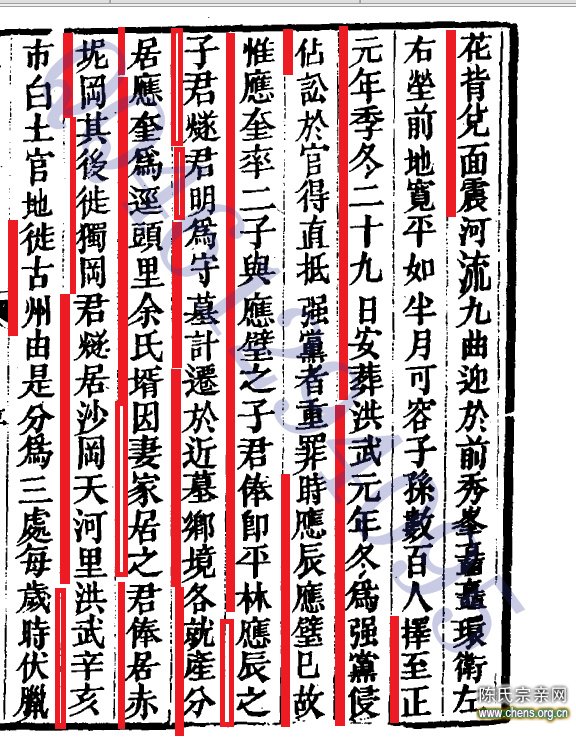 花背兌面震河流九曲迎於前秀峯矗矗環衛左
右塋前地寬平如半月可容子孫數百人擇至正
元年季冬二十九日安葬洪武元年冬為强黨侵
佔訟於官得直抵强黨者重罪時應辰應壁已故
惟應奎率二子與應壁之子君俸卽平林應辰之
子君燧君明為守墓計遷於近墓鄉境各就產分
居應奎為逕頭里余氏壻因妻家居之君俸居赤
坭岡其後徙獨岡君燧居沙岡天河里洪武辛亥
市白土官地徙古州由是分為三處每歲時伏臘
陈氏宗亲网
www.chens.org.cn